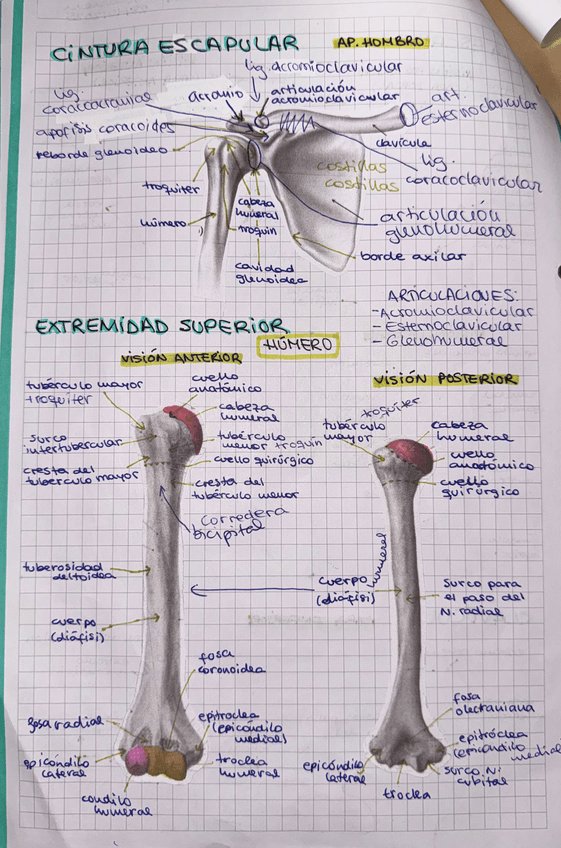 CINTURA ESCAPULAR
AP. HOMBRO
lig acromioclavicular
lig.
coracoacromial
acromio
articulación
acromioclavicular
art.
esternoclavicular
apófisis coracoides
reborde glenoideo
clavícula
costillas
costillas
lig.
coracoclavicular
troquiter
cabeza
humeral
húmero
troquin
articulación
glenohumeral
cavidad
glenoidea
borde axilar
ARTICULACIONES:
- Acromioclavicular
- Esternoclavicular
- Glenohumeral
EXTREMIDAD SUPERIOR
HÚMERO
VISIÓN ANTERIOR
VISIÓN POSTERIOR
tubérculo mayor
troquiter
cuello
anatómico
cabeza
humeral
surco
intertubercular
tubérculo
menor troquin
cresta del
tubérculo mayor
cuello quirúrgico
cresta del
tubérculo menor
corredera
bicipital
tuberosidad
deltoidea
cuerpo
(diáfisi)
fosa
coronoidea
fosa radial
epitroclea
(epicóndilo
medial)
epicóndilo
lateral
troclea
humeral
condilo
humeral
troquiter
tubérculo
mayor
cabeza
humeral
cuello
anatómico
cuello
quirúrgico
humeral
cuerpo
(diáfisi)
surco para
el paso del
N. radial
fosa
olecraniana
epitróclea
(epicóndilo
medial)
epicóndilo
lateral
surco N.
cubital
troclea